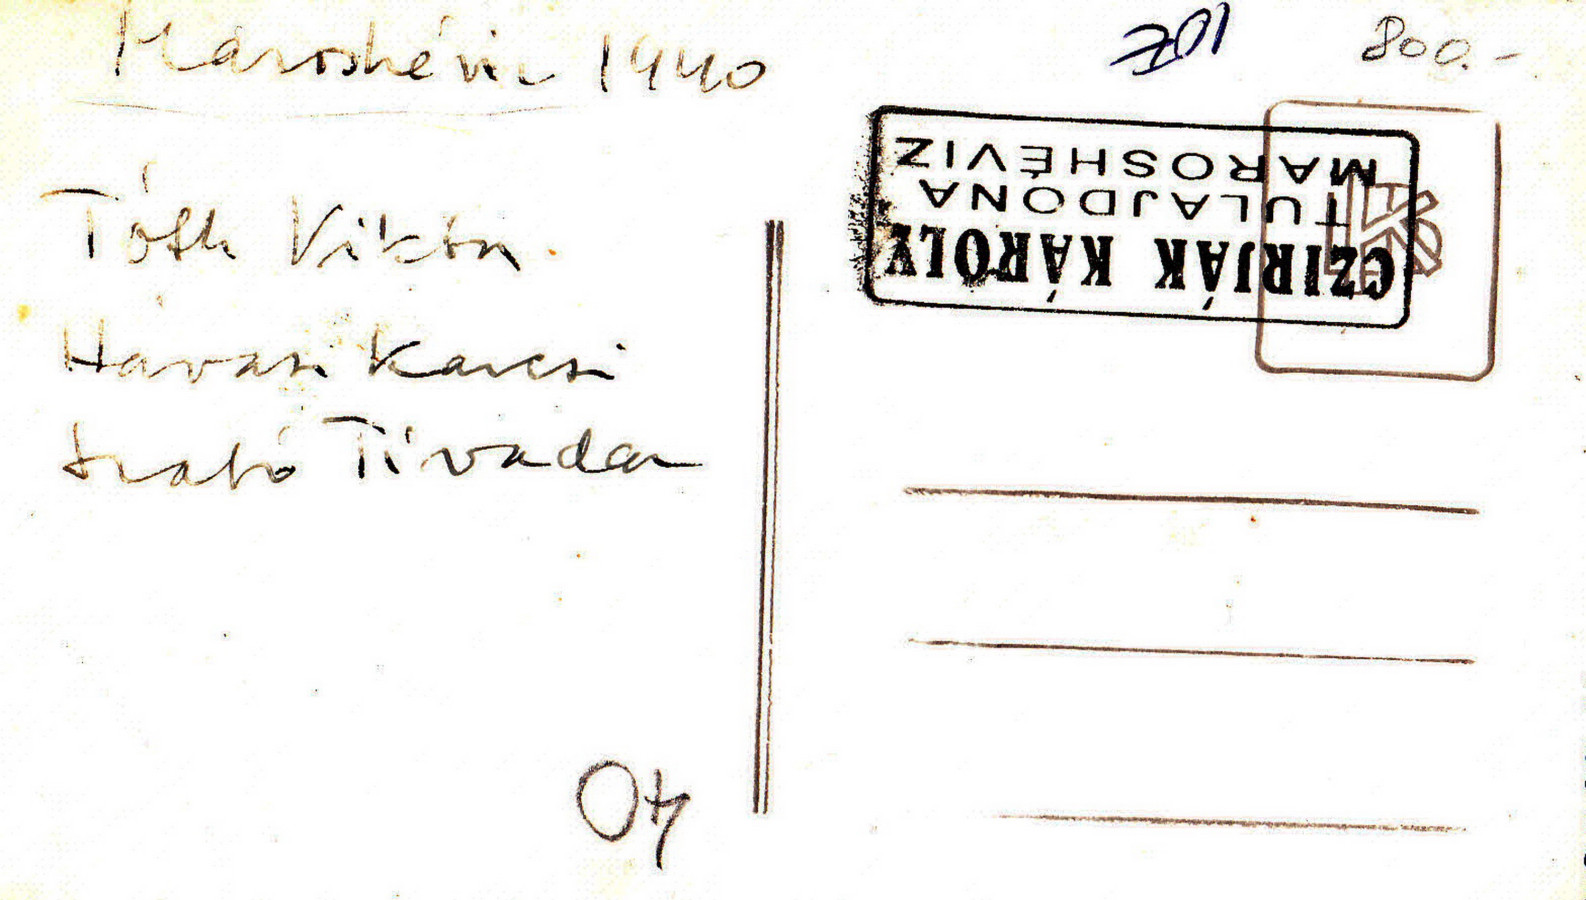 Maroshévíz 1940
800.-
Tóth Viktor
Havasi Karcsi
Szabó Tivadar
CZIRJÁK KÁROLY
TULAJDONA
MAROSHÉVIZ